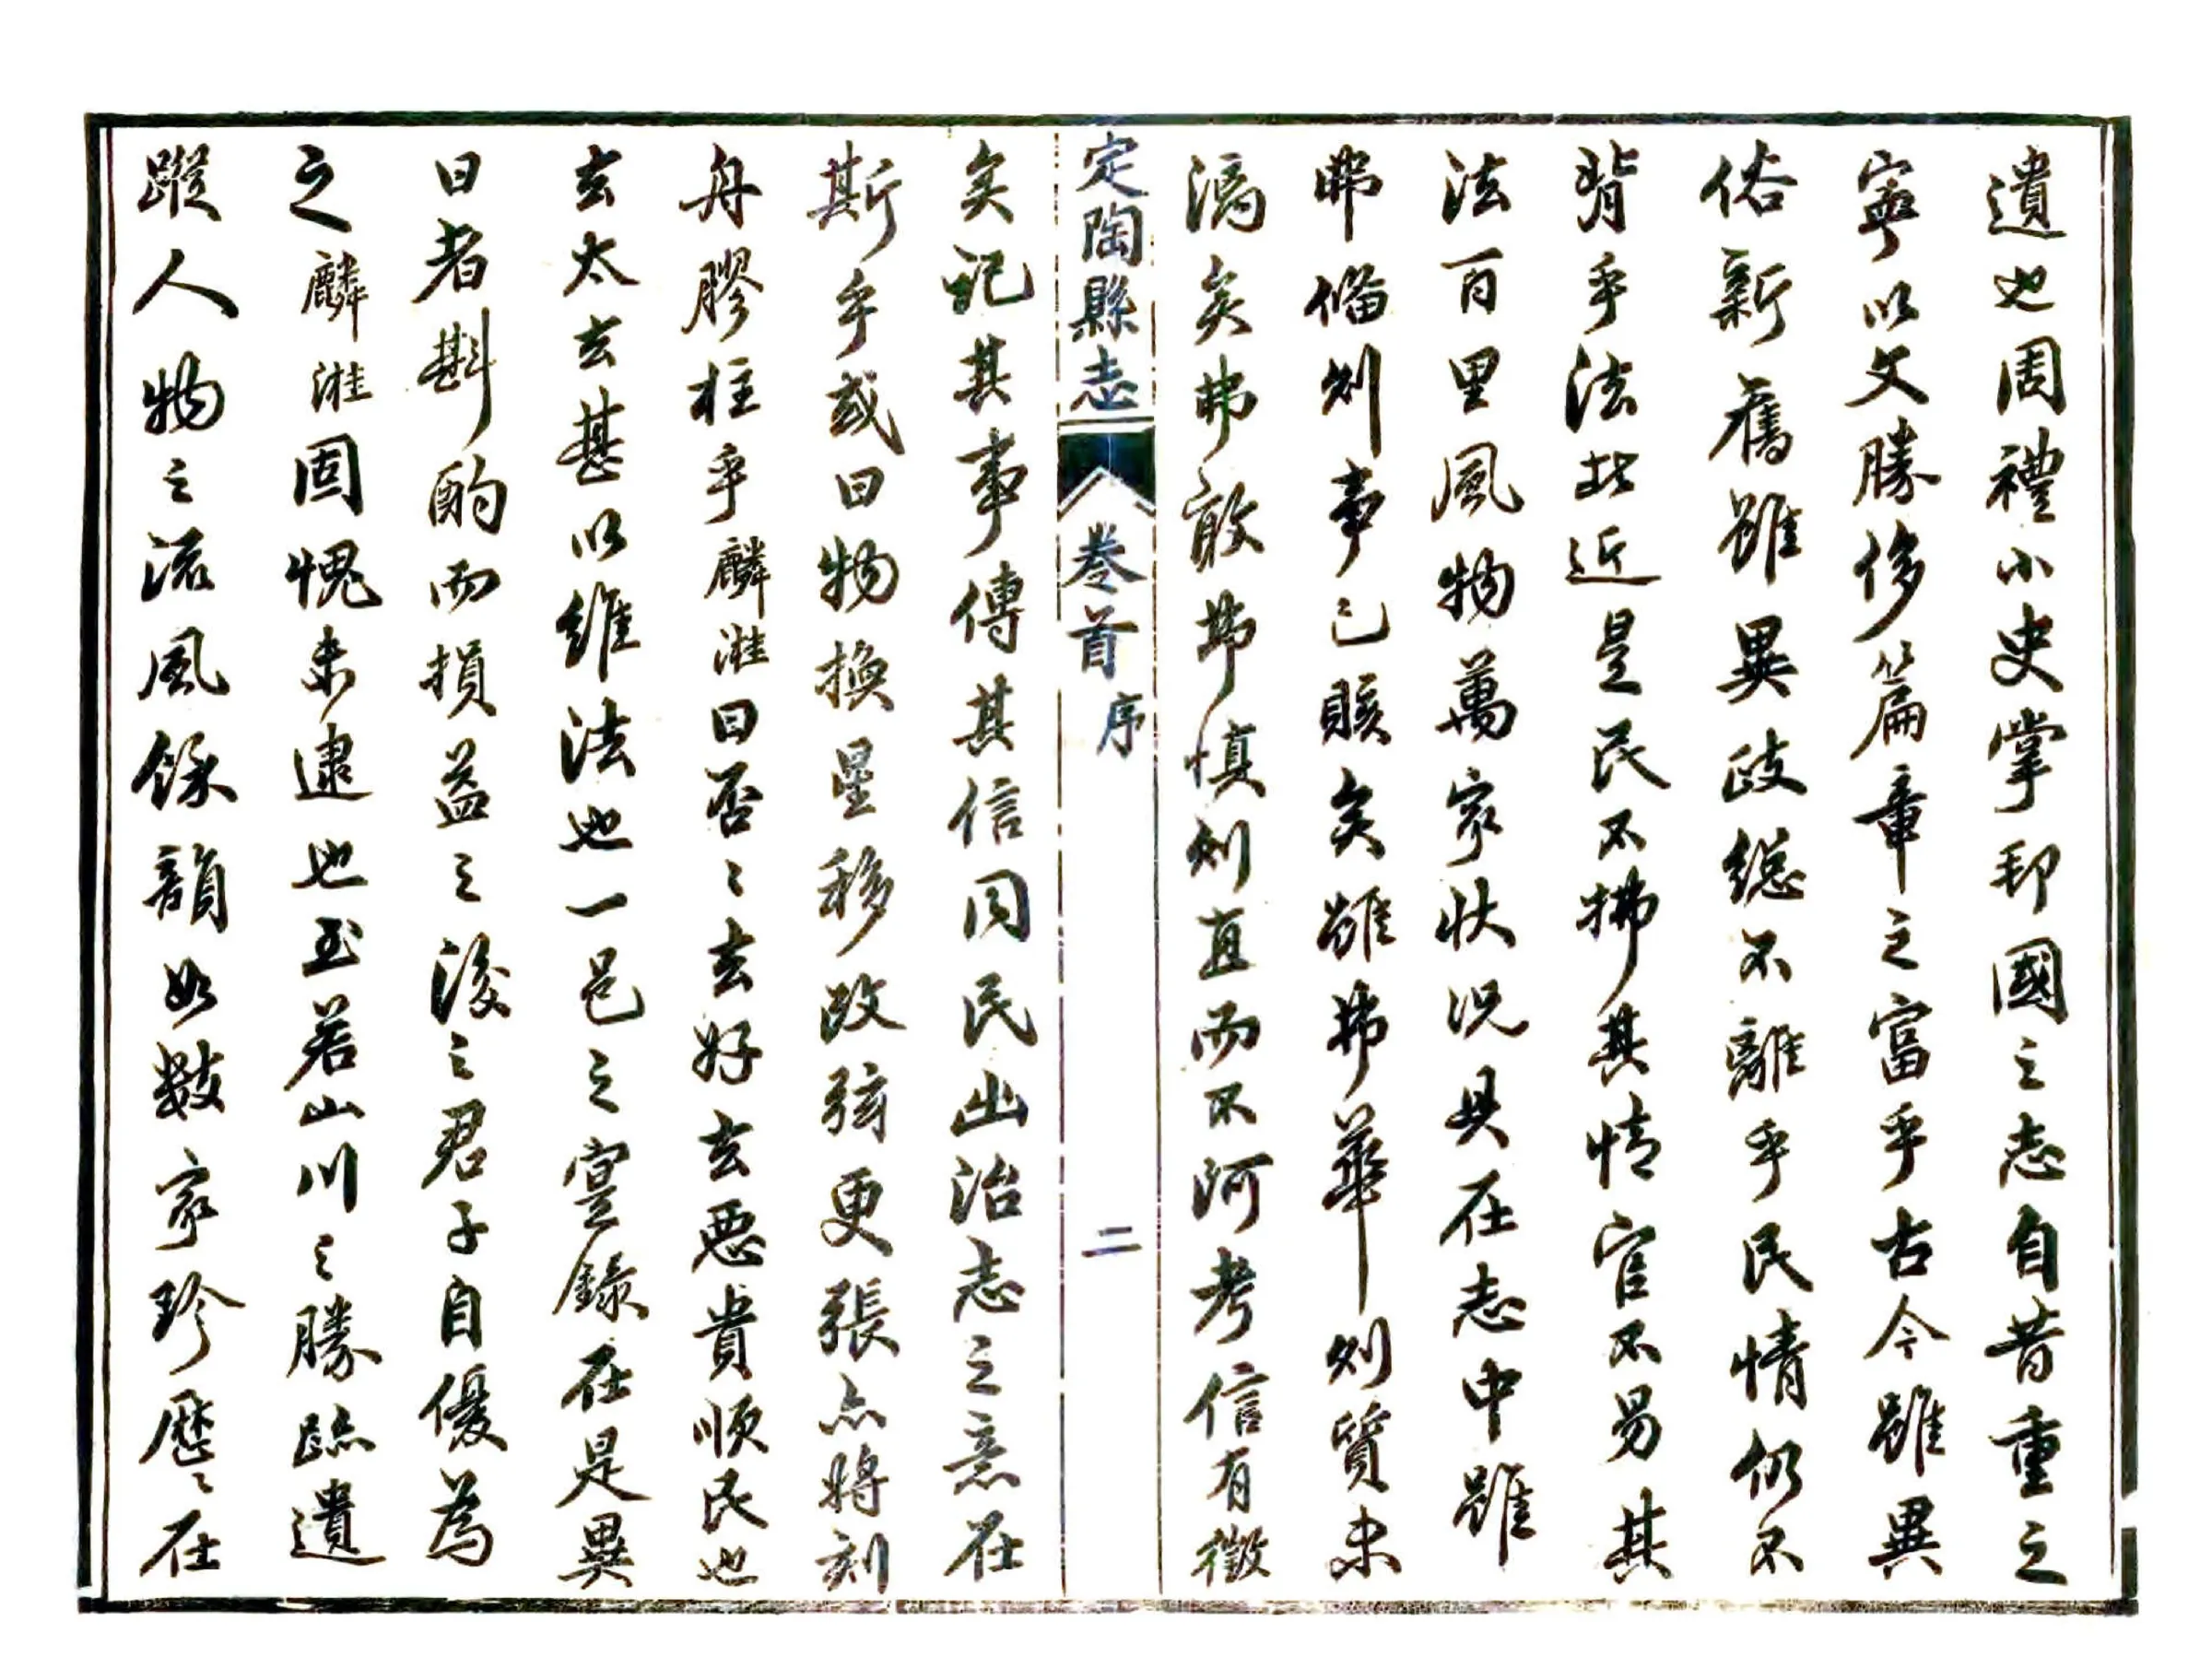 遺也周禮小史掌邦國之志自昔重之
寧以文勝侈篇章之富乎古今雖異
俗新舊雖異政總不離乎民情仍不
背乎法此近是民不拂其情官不易其
法百里風物萬家狀況具在志中雖
弗備則事已賅矣雖弗華則質未
漓矣弗敢弗慎則直而不阿考信有徵
定陶縣志
卷首
序
二
矣記其事傳其信同民出治志之意在
斯乎或曰物換星移改弦更張亦將刻
舟膠柱乎麟淮曰否〻去好去惡貴順民也
去太去甚以維法也一邑之實錄在是異
日者斟酌而損益之後之君子自優為
之麟淮固愧未逮也至若山川之勝跡遺
蹤人物之流風餘韻如數家珍歷〻在